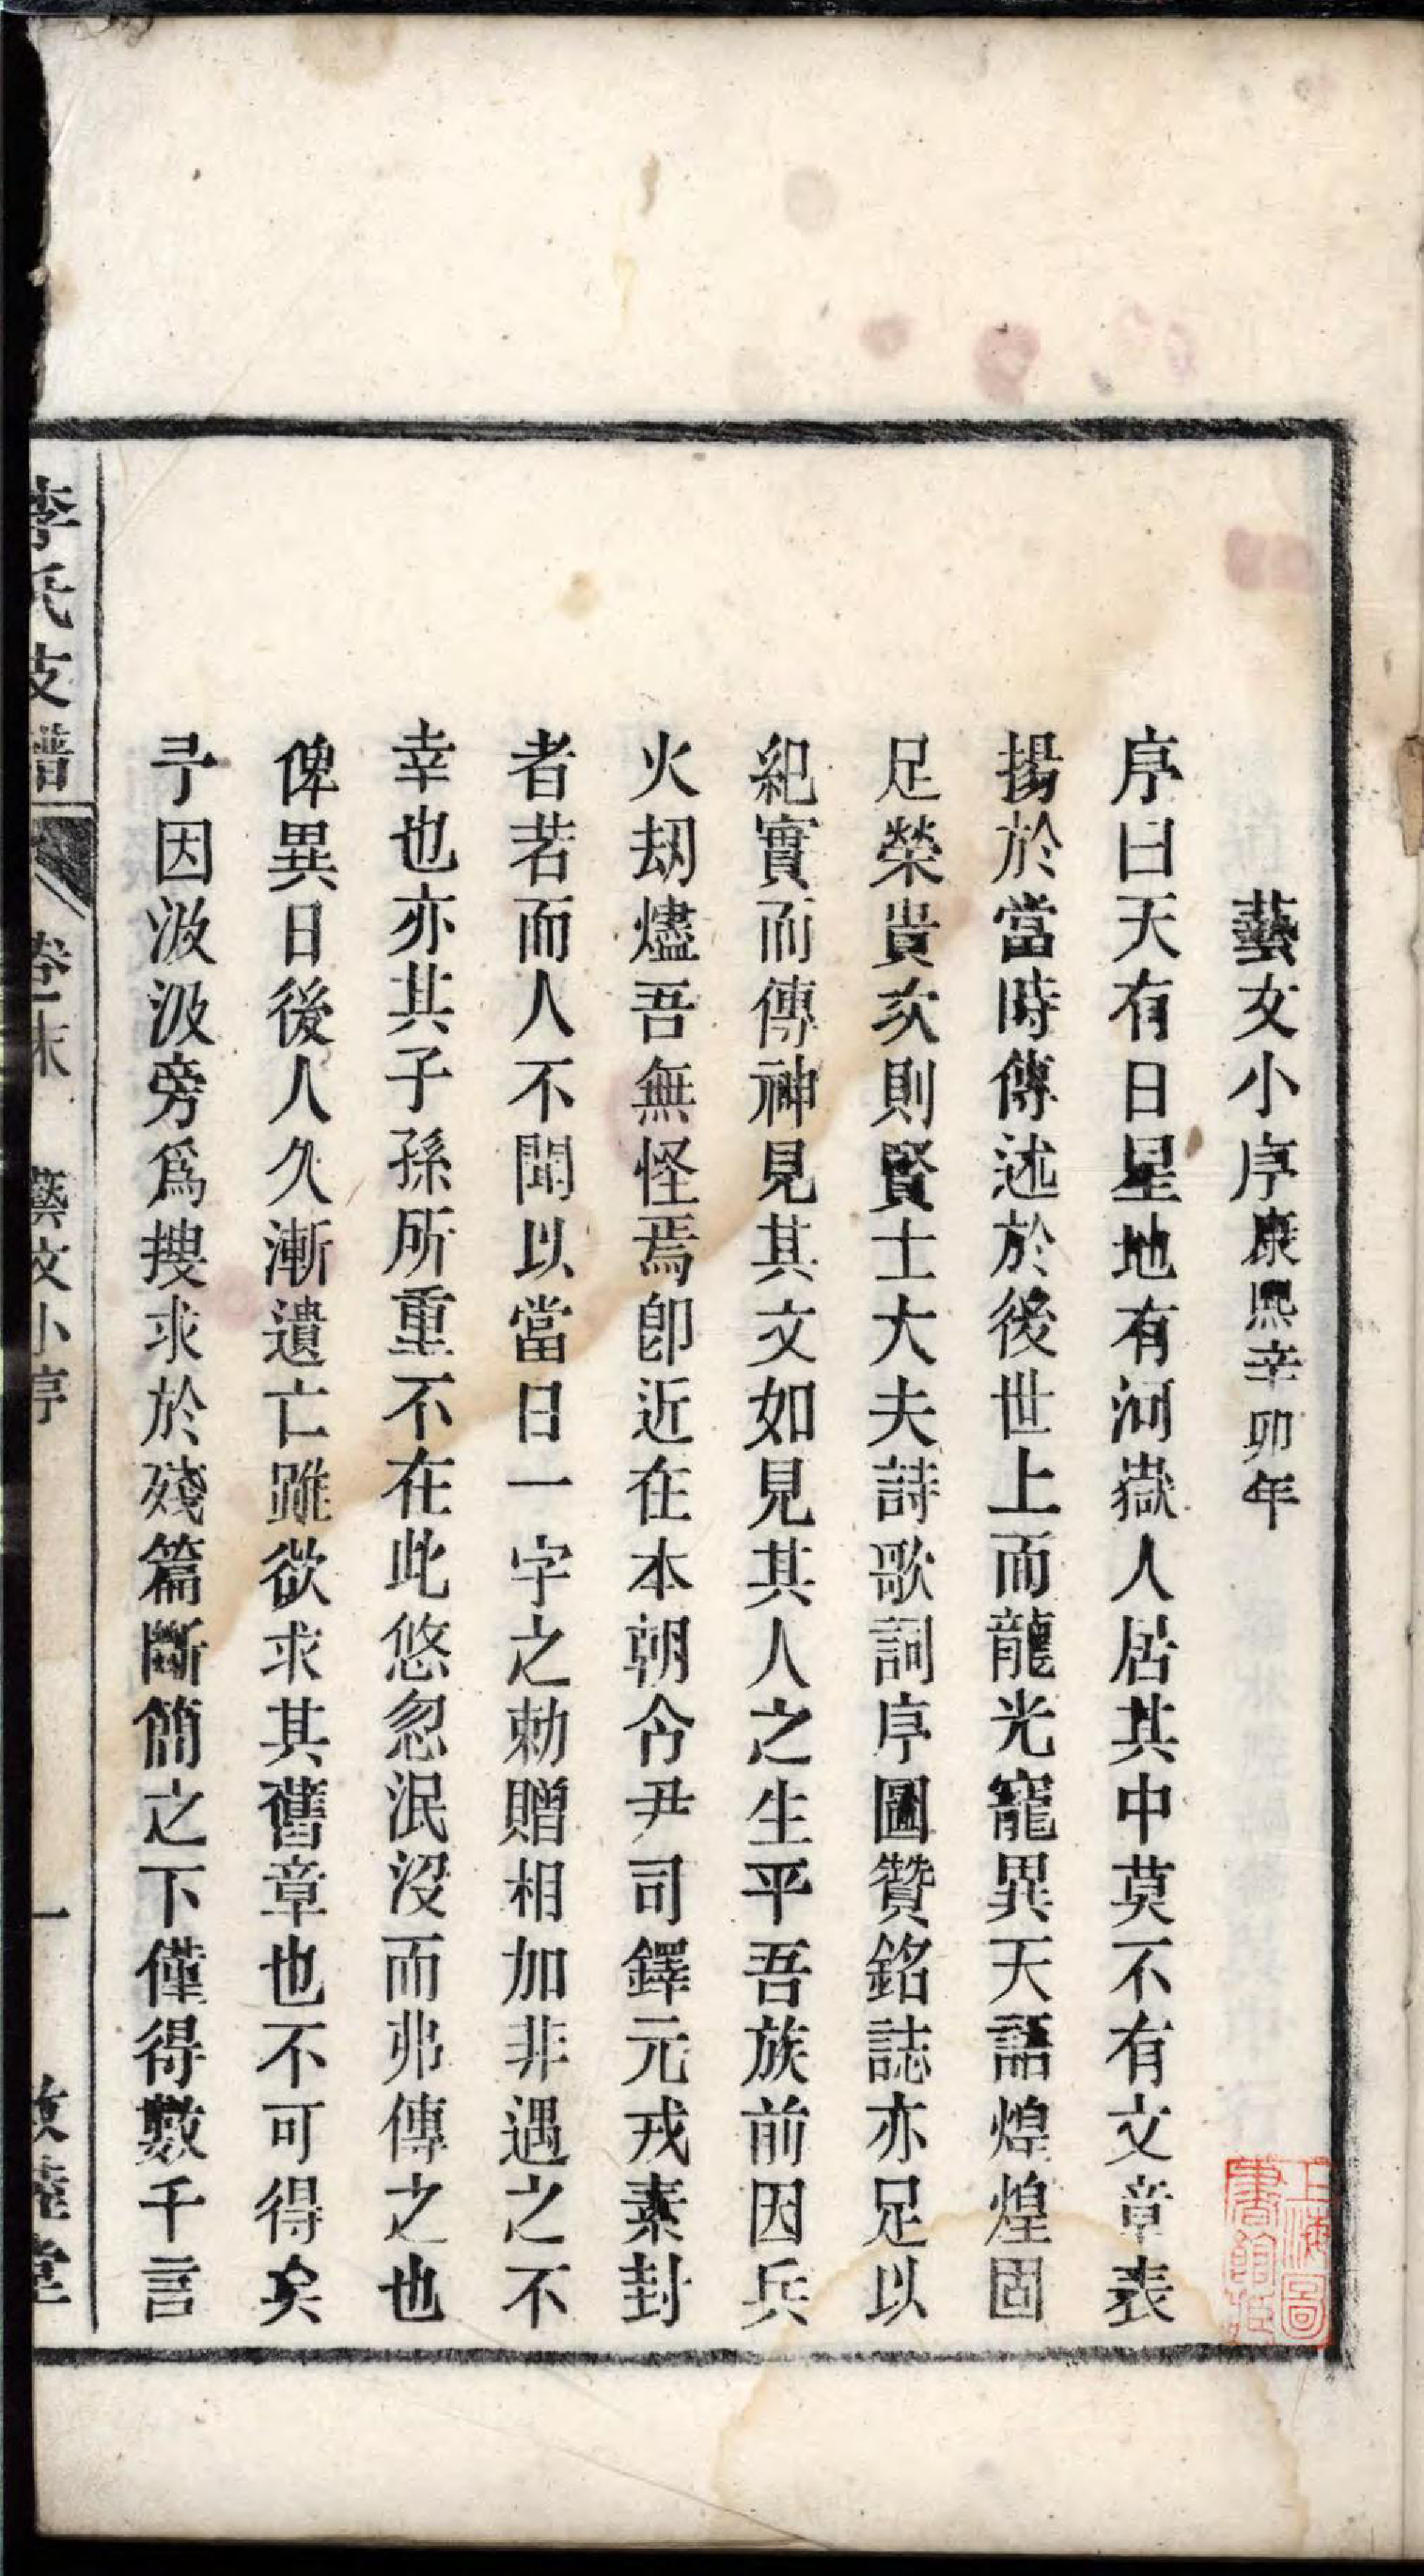 藝文小序康熙辛卯年
序曰天有日星地有河嶽人居其中莫不有文章表
揚於當時傳述於後世上而龍光寵異天語煌煌固
足榮貴次則賢士大夫詩歌詞序圖贊銘誌亦足以
紀實而傳神見其文如見其人之生平吾族前因兵
火刼燼吾無怪焉卽近在本朝令尹司鐸元戎素封
者若而人不聞以當日一字之勅贈相加非遇之不
幸也亦其子孫所重不在此悠忽泯没而弗傳之也
俾異日後人久漸遺亡雖欲求其舊章也不可得矣
予因汲汲旁爲搜求於殘篇斷簡之下僅得數千言
李氏支譜 卷末 藝文小序 一 敦睦堂
上海圖書館藏